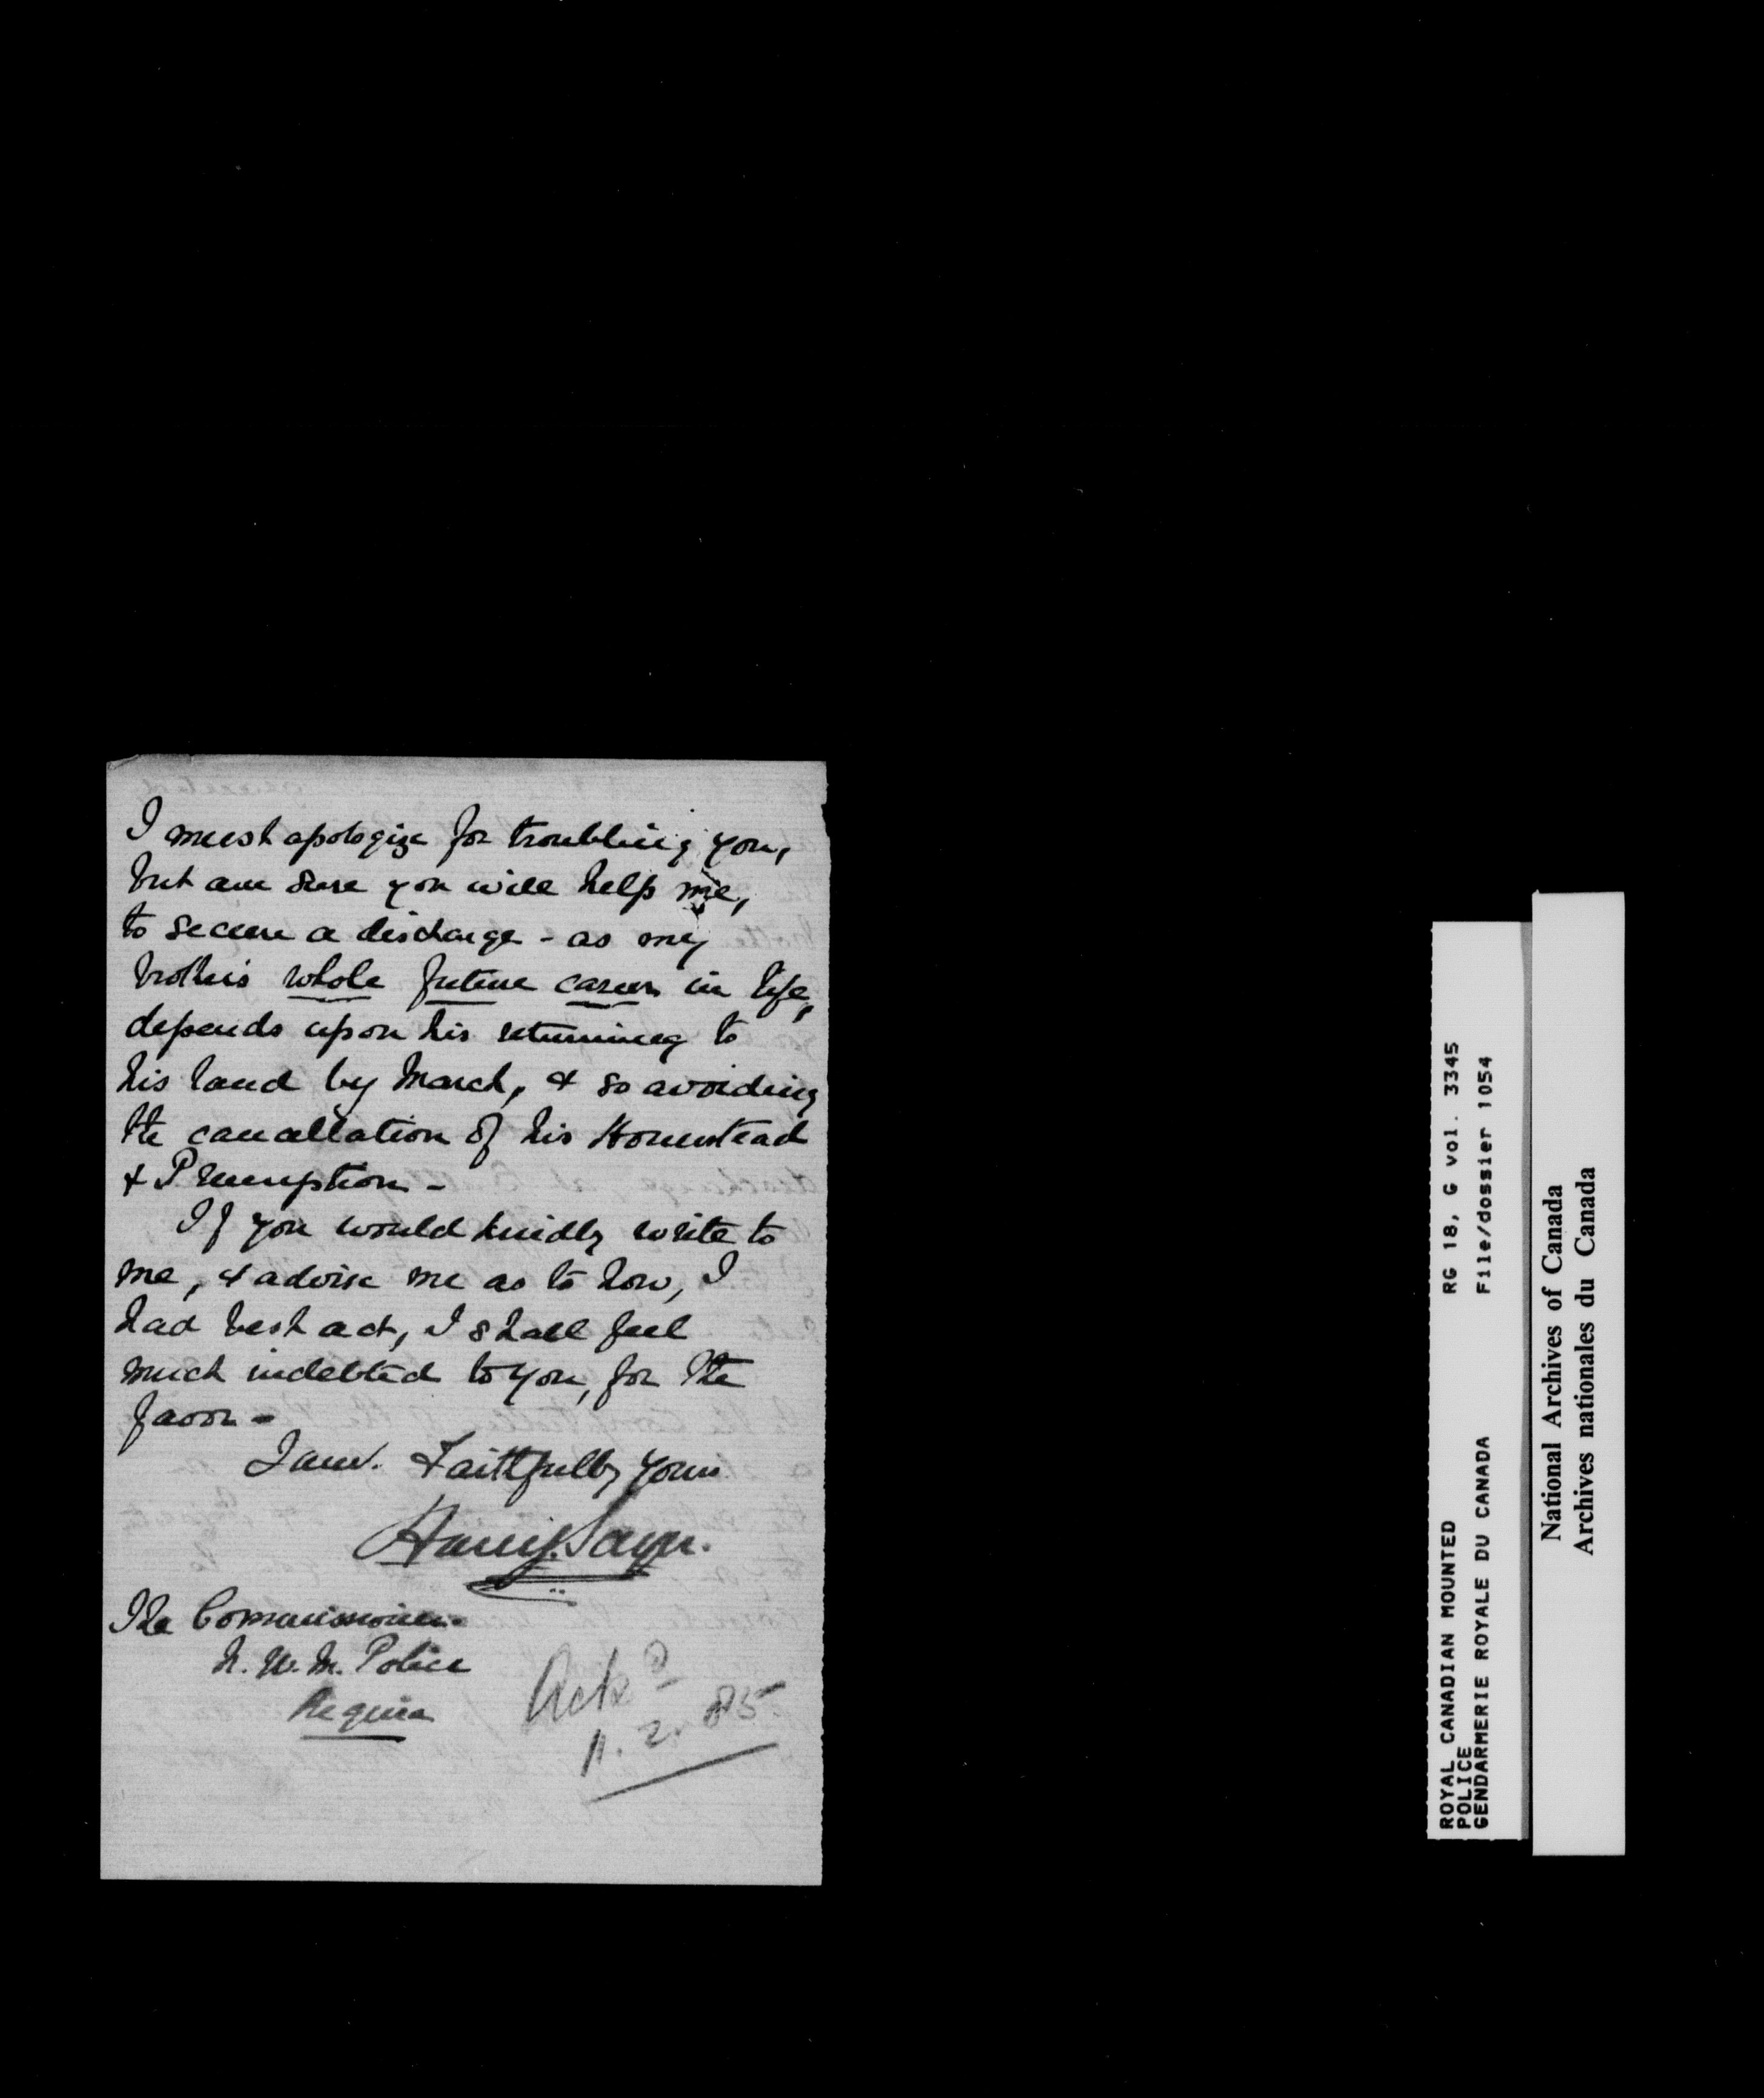 I must apologize for troubling you,
but am sure you will help me,
to secure a discharge - as my
brother's whole future career in life,
depends upon his returning to
his land by March, & so avoiding
the cancellation of his Homestead
& Preemption -
If you would kindly write to
me, & advise me as to how, I
had best act, I shall feel
much indebted to you, for the
favor -
I am. Faithfully yours
Harry
The Commissioner
N. W. M. Police
Regina
Ackd
11. 2. 85
ROYAL CANADIAN MOUNTED RG 18, G vol. 3345
POLICE
GENDARMERIE ROYALE DU CANADA File/dossier 1054
National Archives of Canada
Archives nationales du Canada